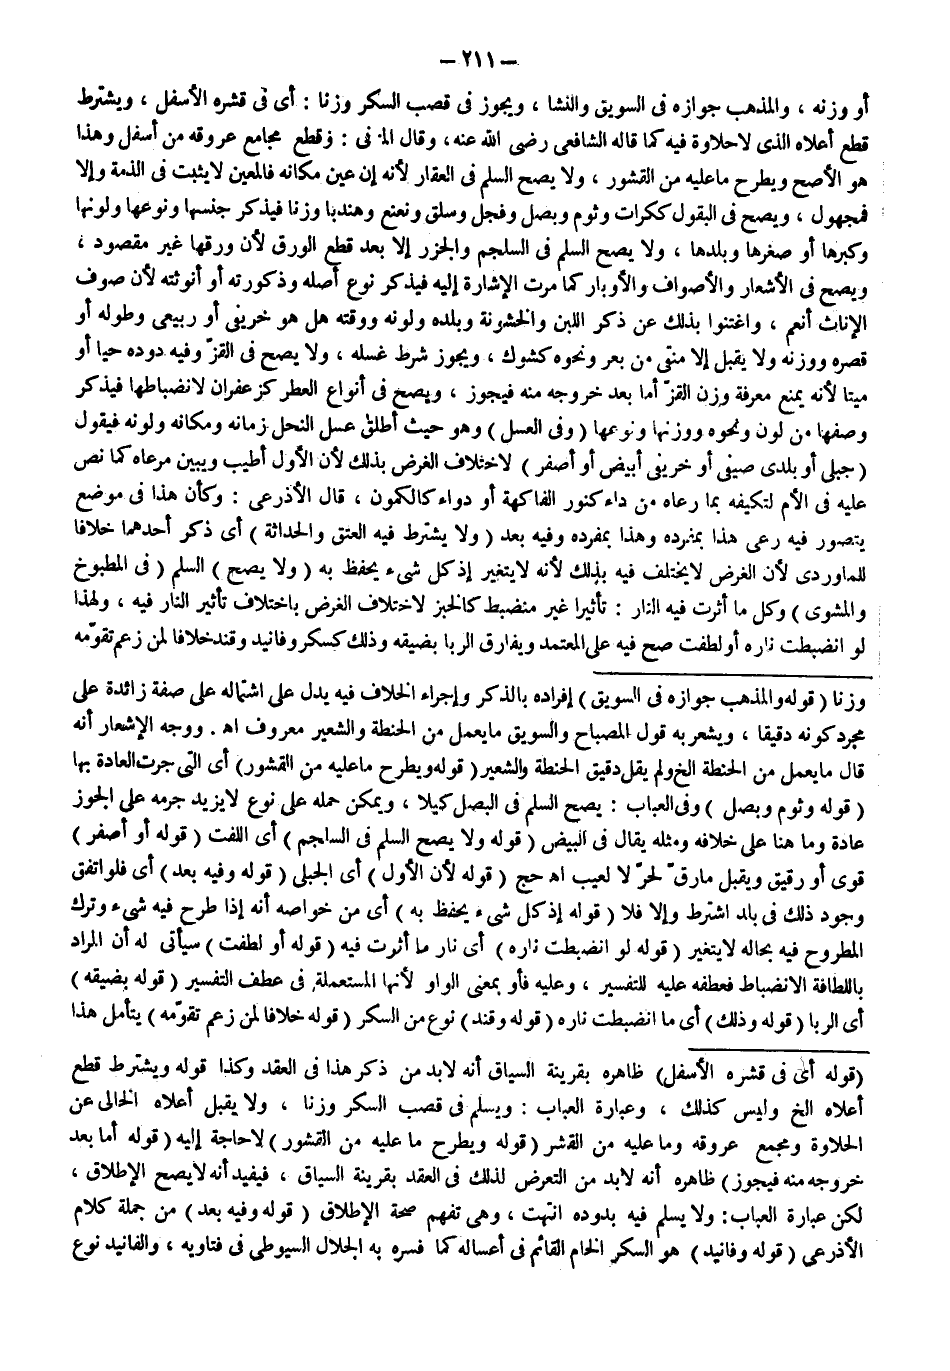 — ٢١١ —
أو وزنه ، والمذهب جوازه فى السويق والنشا ، ويجوز فى قصب السكر وزنا : أى فى قشره الأسفل ، ويشترط
قطع أعلاه الذى لاحلاوة فيه كما قاله الشافعى رضى الله عنه، وقال المزنى : وقطع مجامع عروقه من أسفل وهذا
هو الأصح ويطرح ماعليه من القشور ، ولا يصح السلم فى العقار لأنه إن عين مكانه فالمعين لايثبت فى الذمة وإلا
فمجهول ، ويصح فى البقول ككرات وثوم وبصل وفجل وسلق ونعنع وهندبا وزنا فيذكر جنسها ونوعها ولونها
وكبرها أو صغرها وبلدها ، ولا يصح السلم فى السلجم والجزر إلا بعد قطع الورق لأن ورقها غير مقصود ،
ويصح فى الأشعار والأصواف والأوبار كما مرت الإشارة إليه فيذكر نوع أصله وذكورته أو أنوثته لأن صوف
الإناث أنعم ، واغتنوا بذلك عن ذكر اللين والخشونة وبلده ولونه ووقته هل هو خريفى أو ربيعى وطوله أو
قصره ووزنه ولا يقبل إلا منقى من بعر ونحوه كشوك ، ويجوز شرط غسله ، ولا يصح فى القزّ وفيه دوده حيا أو
ميتا لأنه يمنع معرفة وزن القزّ أما بعد خروجه منه فيجوز ، ويصح فى أنواع العطر كزعفران لانضباطها فيذكر
وصفها من لون ونحوه ووزنها ونوعها ( وفى العسل ) وهو حيث أطلق عسل النحل زمانه ومكانه ولونه فيقول
( جبلى أو بلدى صيفى أو خريفى أبيض أو أصفر ) لاختلاف الغرض بذلك لأن الأول أطيب ويبين مرعاه كما نص
عليه فى الأم لتكيفه بما رعاه من داء كنور الفاكهة أو دواء كالكمون ، قال الأذرعى : وكأن هذا فى موضع
يتصور فيه رعى هذا بمفرده وهذا بمفرده وفيه بعد ( ولا يشترط فيه العتق والحداثة ) أى ذكر أحدهما خلافا
للماوردى لأن الغرض لايختلف فيه بذلك لأنه لايتغير إذ كل شىء يحفظ به ( ولا يصح ) السلم ( فى المطبوخ
والمشوى ) وكل ما أثرت فيه النار : تأثيرا غير منضبط كالخبز لاختلاف الغرض باختلاف تأثير النار فيه ، ولهذا
لو انضبطت ناره أو لطفت صح فيه على المعتمد ويفارق الربا بضيقه وذلك كسكر وفانيد وقند خلافا لمن زعم تقوّمه
وزنا ( قوله والمذهب جوازه فى السويق ) إفراده بالذكر وإجراء الخلاف فيه يدل على اشتماله على صفة زائدة على
مجرد كونه دقيقا ، ويشعر به قول المصباح والسويق مايعمل من الحنطة والشعير معروف اه . ووجه الإشعار أنه
قال مايعمل من الحنطة الخ ولم يقل دقيق الحنطة والشعير ( قوله ويطرح ماعليه من القشور ) أى التى جرت العادة بها
( قوله وثوم وبصل ) وفى العباب : يصح السلم فى البصل كيلا ، ويمكن حمله على نوع لايزيد جرمه على الجوز
عادة وما هنا على خلافه ومثله يقال فى البيض ( قوله ولا يصح السلم فى السلجم ) أى اللفت ( قوله أو أصفر )
قوى أو رقيق ويقبل مارقّ لحرّ لا لعيب اه حج ( قوله لأن الأول ) أى الجبلى ( قوله وفيه بعد ) أى فلو اتفق
وجود ذلك فى بلد اشترط وإلا فلا ( قوله إذ كل شىء يحفظ به ) أى من خواصه أنه إذا طرح فيه شىء وترك
المطروح فيه بحاله لايتغير ( قوله لو انضبطت ناره ) أى نار ما أثرت فيه ( قوله أو لطفت ) سيأتى له أن المراد
باللطافة الانضباط فعطفه عليه للتفسير ، وعليه فأو بمعنى الواو لأنها المستعملة فى عطف التفسير ( قوله بضيقه )
أى الربا ( قوله وذلك ) أى ما انضبطت ناره ( قوله وقند ) نوع من السكر ( قوله خلافا لمن زعم تقوّمه ) يتأمل هذا
(قوله أى فى قشره الأسفل) ظاهره بقرينة السياق أنه لابد من ذكر هذا فى العقد وكذا قوله ويشترط قطع
أعلاه الخ وليس كذلك ، وعبارة العباب : ويسلم فى قصب السكر وزنا ، ولا يقبل أعلاه الخالى عن
الحلاوة ومجمع عروقه وما عليه من القشر ( قوله ويطرح ما عليه من القشور ) لاحاجة إليه ( قوله أما بعد
خروجه منه فيجوز ) ظاهره أنه لابد من التعرض لذلك فى العقد بقرينة السياق ، فيفيد أنه لايصح الإطلاق ،
لكن عبارة العباب : ولا يسلم فيه بدوده انتهت ، وهى تفهم صحة الإطلاق ( قوله وفيه بعد ) من جملة كلام
الأذرعى ( قوله وفانيد ) هو السكر الخام القائم فى أعساله كما فسره به الجلال السيوطى فى فتاويه ، والفانيد نوع